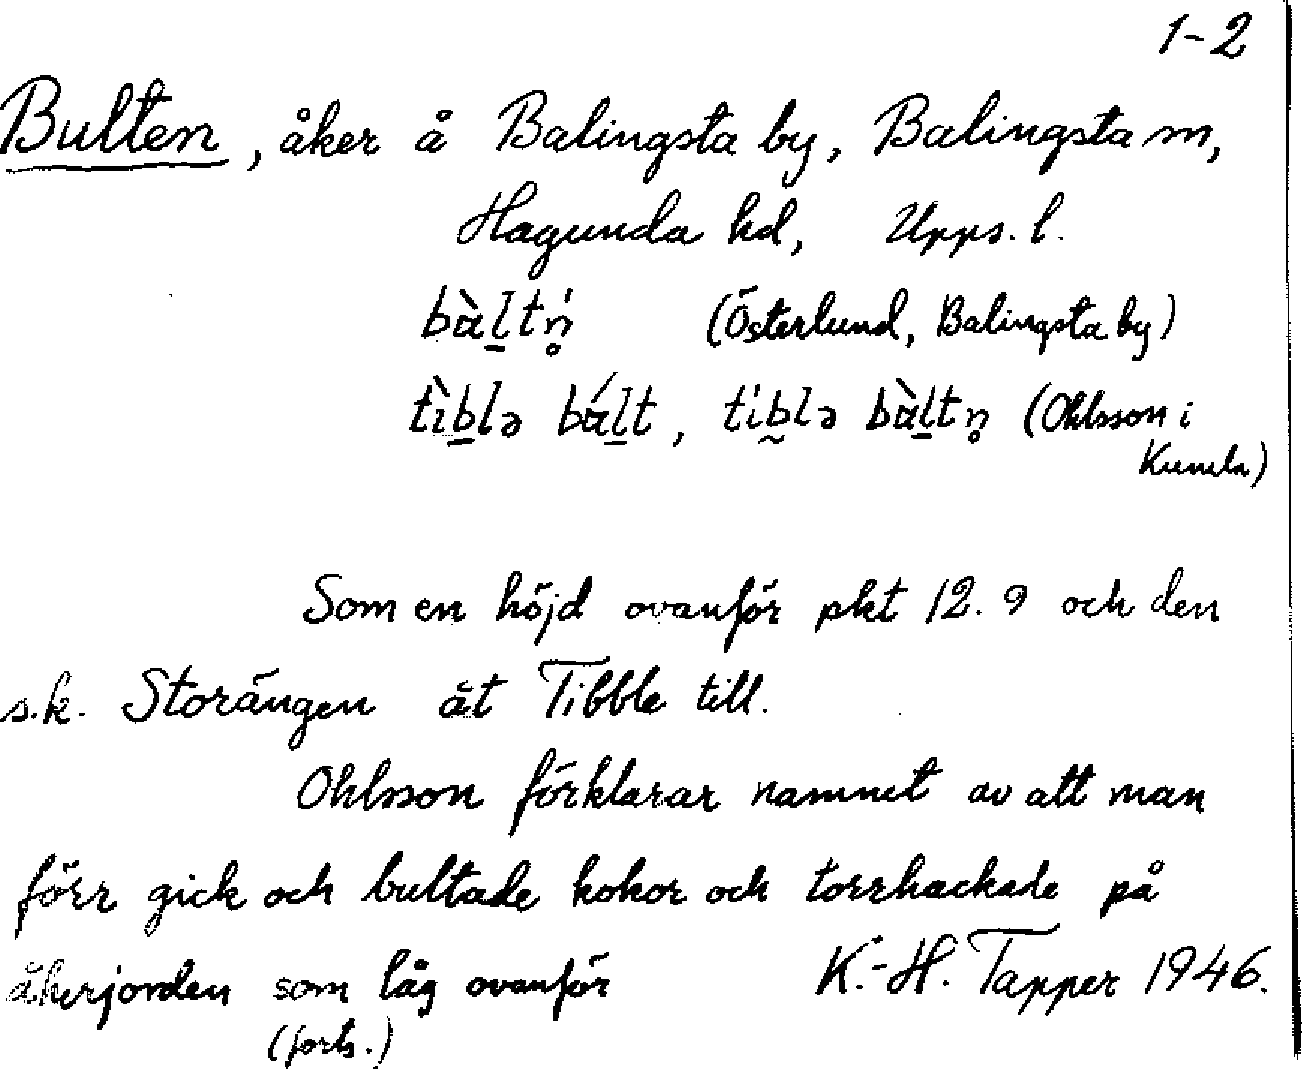 1-2
Bulten, åker å Balingsta by, Balingsta sn,
Hagunda hd, Upps. l.
bàl̠tṇ̊́ (Österlund, Balingsta by)
tìb̠lə bál̠t, tíb̰lə bàl̠tn̥ (Ohlsson i
Kumla)
Som en höjd ovanför pkt 12.9 och den
s.k. Storängen åt Tibble till.
Ohlsson förklarar namnet av att man
förr gick och bultade kokor och torrhackade på
åkerjorden som låg ovanför K.-H. Tapper 1946.
(forts.)